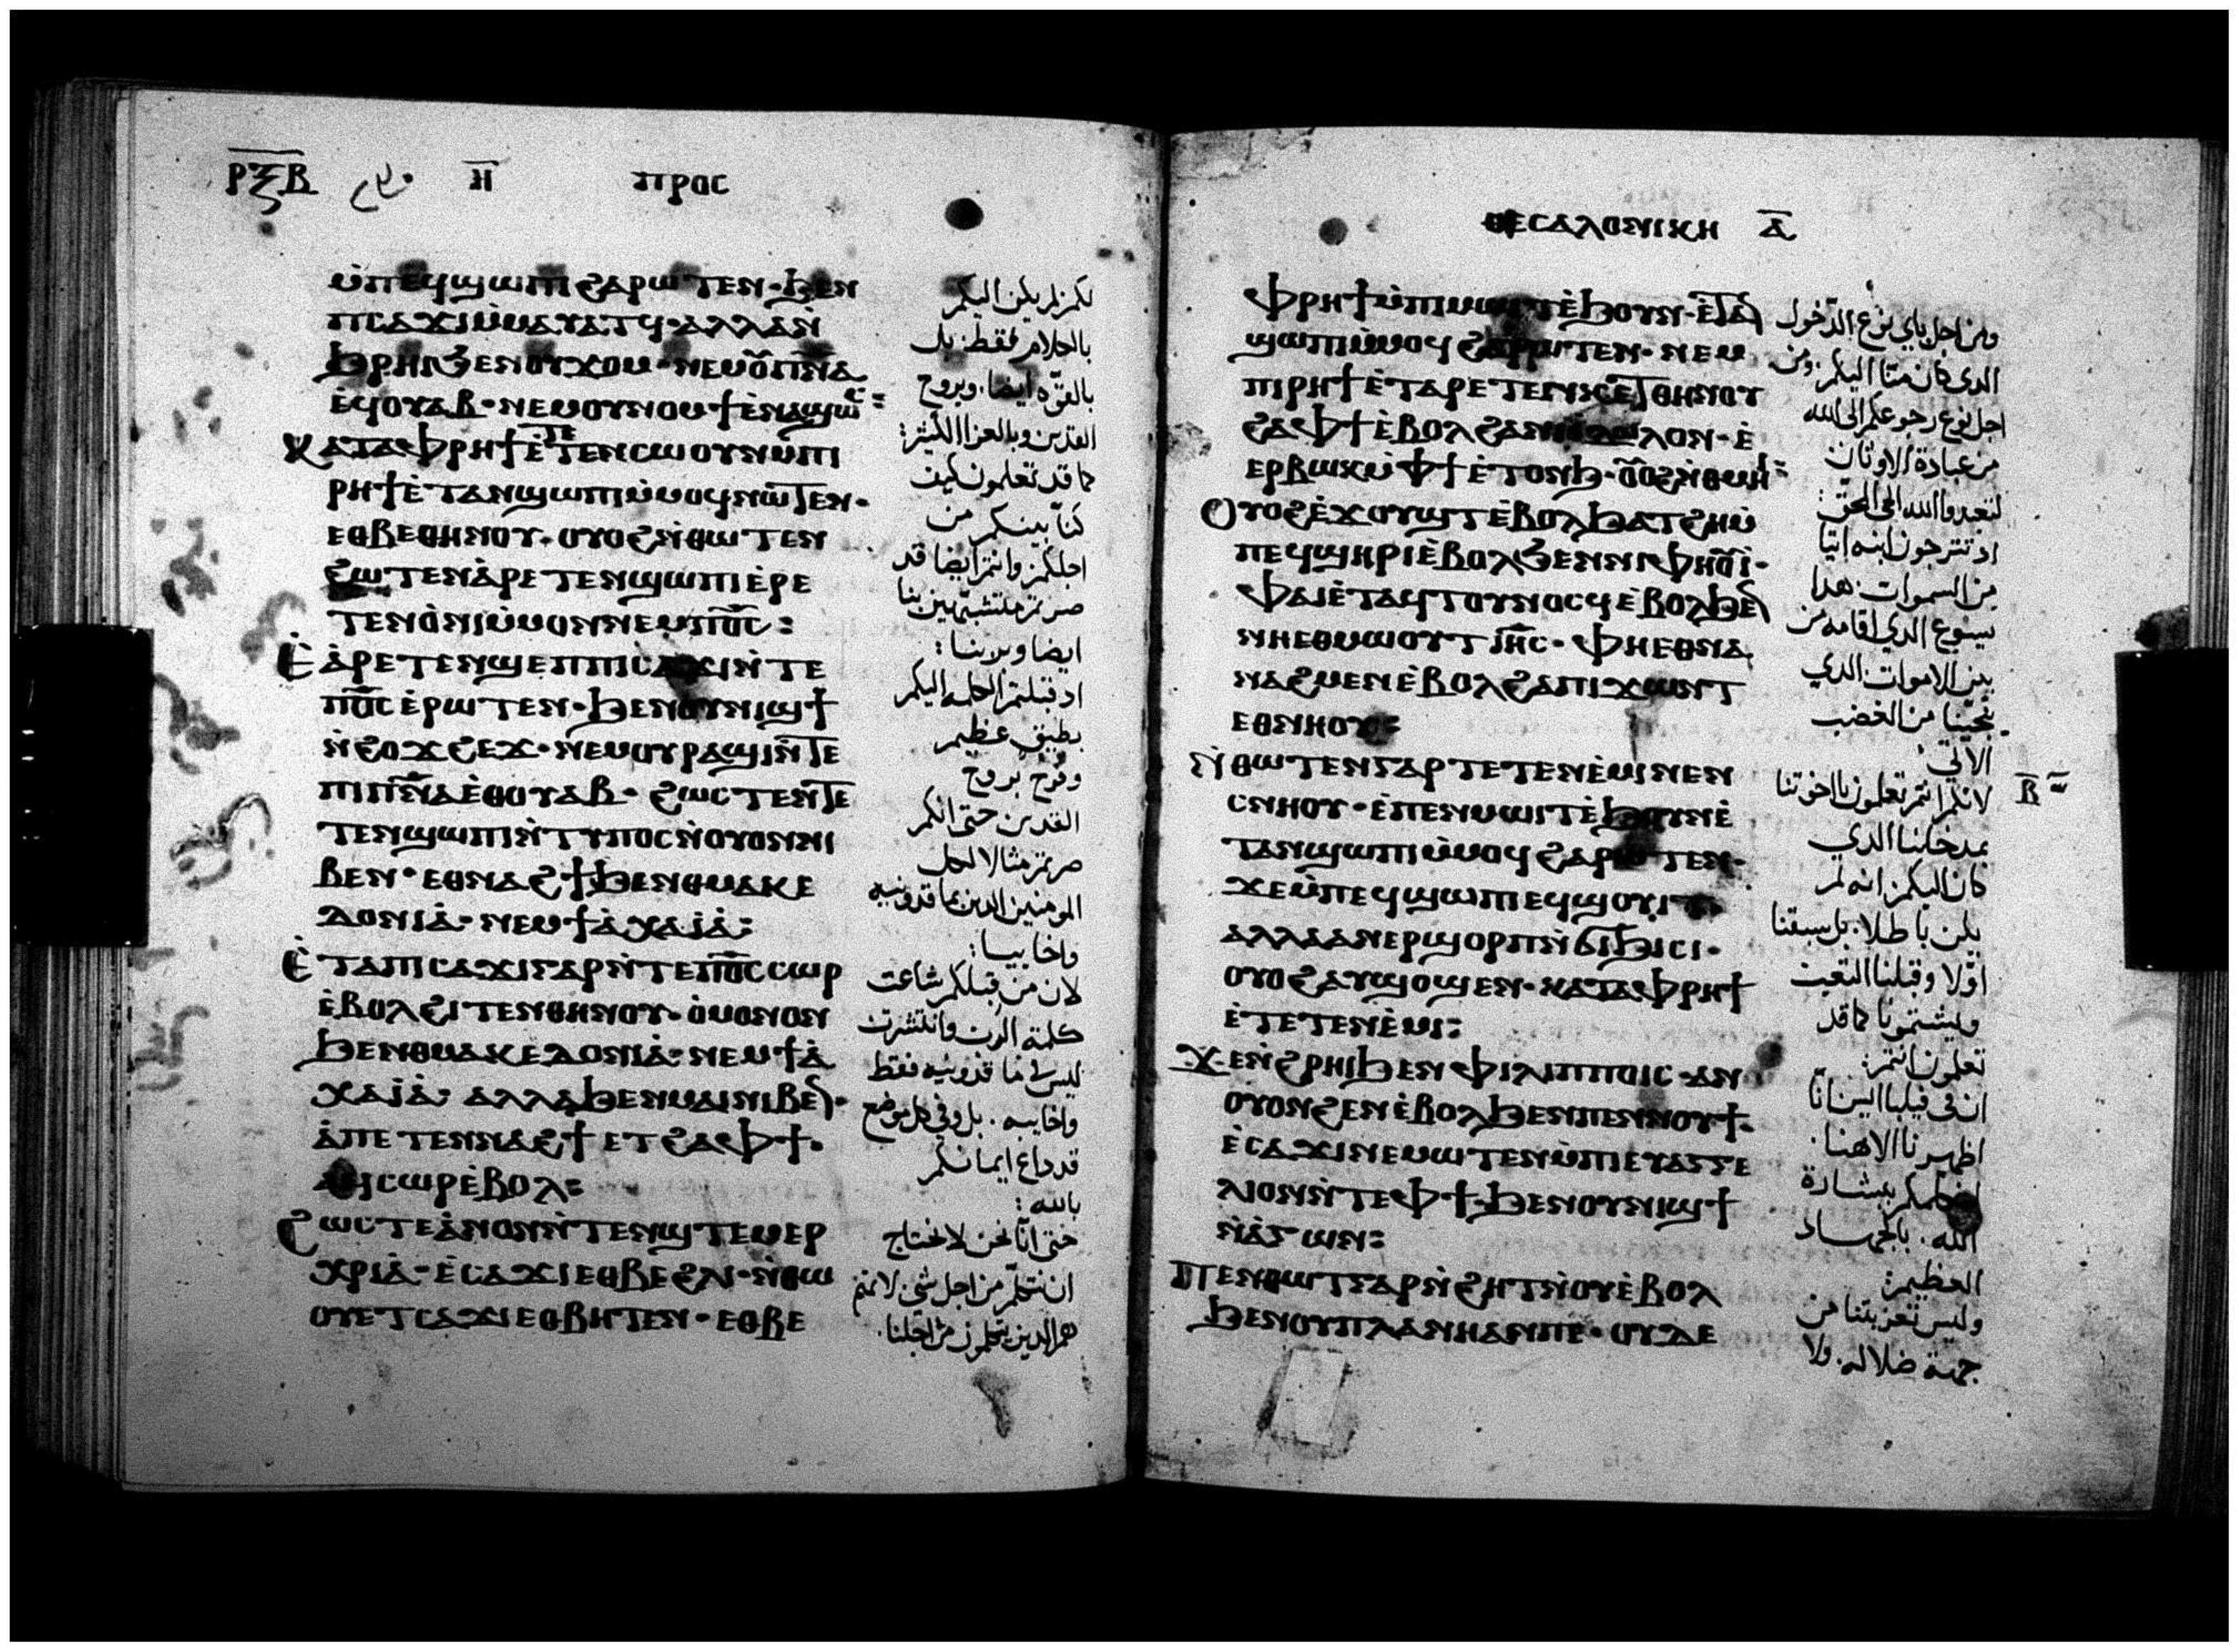 ⲣⲝⲃ ⲏ ⲡⲣⲟⲥ
ⲙ̀ⲡⲉϥϣⲱⲡⲓ ϩⲁⲣⲱⲧⲉⲛ· ϧⲉⲛ
ⲡⲥⲁϫⲓ ⲙ̀ⲙⲁⲩⲁⲧϥ· ⲁⲗⲗⲁ ⲛ̀
ϧⲣⲏⲓ ϧⲉⲛ ⲟⲩϫⲟⲙ· ⲛⲉⲙ ⲟⲩⲡ̅ⲛ̅ⲁ̅
ⲉϥⲟⲩⲁⲃ· ⲛⲉⲙ ⲟⲩⲛⲟⲩϯ ⲉⲛⲁϣⲱϥ:
ⲕⲁⲧⲁ ⲫⲣⲏϯ ⲉ̀ⲧⲉⲧⲉⲛⲥⲱⲟⲩⲛ ⲙⲡⲓ
ⲣⲏϯ ⲉ̀ⲧⲁⲛϣⲱⲡⲓ ⲙ̀ⲙⲟϥ ⲛⲱⲧⲉⲛ·
ⲉⲑⲃⲉ ⲑⲏⲛⲟⲩ· ⲟⲩⲟϩ ⲛ̀ⲑⲱⲧⲉⲛ
ϩⲱⲧⲉⲛ ⲁ̀ⲣⲉⲧⲉⲛϣⲱⲡⲓ ⲉ̀ⲣⲉ
ⲧⲉⲛⲟ̀ⲛⲓ ⲙ̀ⲙⲟⲛ ⲛⲉⲙ ⲡ̅ⲟ̅ⲥ̅:
ⲉ̀ⲁ̀ⲣⲉⲧⲉⲛϣⲉⲡ ⲡⲓⲥⲁϫⲓ ⲛ̀ⲧⲉ
ⲡ̅ⲟ̅ⲥ̅ ⲉ̀ⲣⲱⲧⲉⲛ· ϧⲉⲛ ⲟⲩⲛⲓϣϯ
ⲛ̀ϩⲟϫϩⲉϫ· ⲛⲉⲙ ⲟⲩⲣⲁϣⲓ ⲛ̀ⲧⲉ
ⲡⲓⲡ̅ⲛ̅ⲁ̅ ⲉ̀ⲑⲟⲩⲁⲃ· ϩⲱⲥ ⲧⲉⲛⲧⲉ
ⲧⲉⲛϣⲱⲡⲓ ⲛ̀ⲧⲩⲡⲟⲥ ⲛ̀ⲟⲩⲟⲛ ⲛⲓ
ⲃⲉⲛ· ⲉⲑⲛⲁϩϯ ϧⲉⲛ ⲑⲙⲁⲕⲉ
ⲇⲟⲛⲓⲁ̀· ⲛⲉⲙ ϯⲁ̀ⲭⲁⲓⲁ̀:
ⲉ̀ⲧⲁ ⲡⲓⲥⲁϫⲓ ⲅⲁⲣ ⲛ̀ⲧⲉ ⲡ̅ⲟ̅ⲥ̅ ⲥⲱⲣ
ⲉ̀ⲃⲟⲗ ϩⲓⲧⲉⲛ ⲑⲏⲛⲟⲩ· ⲟ̀ⲩⲙⲟⲛⲟⲛ
ϧⲉⲛ ⲑⲙⲁⲕⲉⲇⲟⲛⲓⲁ̀· ⲛⲉⲙ ϯⲁ̀
ⲭⲁⲓⲁ̀· ⲁⲗⲗⲁ ϧⲉⲛ ⲙⲁⲓ ⲛⲓⲃⲉⲛ·
ⲁ̀ ⲡⲉⲧⲉⲛⲛⲁϩϯ ⲉⲧϩⲁ ⲫϯ·
ⲁϥⲥⲱⲣ ⲉ̀ⲃⲟⲗ:
ϩⲱⲥⲧⲉ ⲁ̀ⲛⲟⲛ ⲛ̀ⲧⲉⲛϣⲧⲉⲙⲉⲣ
ⲭⲣⲓⲁ̀· ⲉ̀ⲥⲁϫⲓ ⲉⲑⲃⲉ ϩⲗⲓ· ⲛ̀ⲑⲱ
ⲟⲩ ⲉⲧⲥⲁϫⲓ ⲉⲑⲃⲏⲧⲉⲛ· ⲉⲑⲃⲉ
لكم لم يكن اليكم
بالكلام فقط بل
بالقوه ايضا. وبروح
القدس وبالعزا الكثير:
كما قد تعلمون كيف
كنا بينكم من
اجلكم وانتم ايضا قد
صرتم متشبهين بنا
ايضا وبربنا:
اد قبلتم الكلمه اليكم
بضيق عظيم
وفرح بروح
القدس حتى انكم
صرتم مثالا لكل
المومنين الدين بماقدونيه
واخاييا:
لان من قبلكم شاعت
كلمة الرب وانتشرت
ليس في ماقدونيه فقط
واخاييه. بل وفي كل موضع
قد داع ايمانكم
بالله:
حتى انا نحن لا نحتاج
ان نتكلم من اجل شي لانهم
هم الدين يتكلمون من اجلنا.
ⲑⲉⲥⲁⲗⲟⲛⲓⲕⲏ ⲁ̅
ⲫⲣⲏϯ ⲙ̀ⲡⲓⲙⲱⲓⲧ ⲉ̀ϧⲟⲩⲛ· ⲉ̀ⲧⲁⲛ
ϣⲱⲡⲓ ⲙ̀ⲙⲟϥ ϩⲁⲣⲱⲧⲉⲛ· ⲛⲉⲙ
ⲡⲓⲣⲏϯ ⲉ̀ⲧⲁⲣⲉⲧⲉⲛⲕⲉⲧ ⲑⲏⲛⲟⲩ
ϩⲁ ⲫϯ ⲉ̀ⲃⲟⲗ ϩⲁ ⲛⲓⲇⲱⲗⲟⲛ· ⲉ̀
ⲉⲣⲃⲱⲕ ⲙ̀ⲫϯ ⲉ̀ⲧⲟⲛϧ· ⲟⲩⲟϩ ⲛ̀ⲑⲙⲏⲓ:
ⲟⲩⲟϩ ⲉ̀ϫⲟⲩϣⲧ ⲉ̀ⲃⲟⲗ ϧⲁⲧϩⲏ ⲙ̀
ⲡⲉϥϣⲏⲣⲓ ⲉ̀ⲃⲟⲗ ϧⲉⲛ ⲛⲓⲫⲏⲟⲩⲓ̀·
ⲫⲁⲓ ⲉ̀ⲧⲁϥⲧⲟⲩⲛⲟⲥϥ ⲉ̀ⲃⲟⲗ ϧⲉⲛ
ⲛⲏⲉⲑⲙⲱⲟⲩⲧ ⲓ̅ⲏ̅ⲥ̅· ⲫⲏⲉⲑⲛⲁ
ⲛⲁϩⲙⲉⲛ ⲉ̀ⲃⲟⲗ ϩⲁ ⲡⲓϫⲱⲛⲧ
ⲉⲑⲛⲏⲟⲩ:
ⲛ̀ⲑⲱⲧⲉⲛ ⲅⲁⲣ ⲧⲉⲧⲉⲛⲉ̀ⲙⲓ ⲛⲉⲛ
ⲥⲛⲏⲟⲩ· ⲉ̀ⲡⲉⲛⲙⲱⲓⲧ ⲉ̀ϧⲟⲩⲛ ⲉ̀
ⲧⲁⲛϣⲱⲡⲓ ⲙ̀ⲙⲟϥ ϩⲁⲣⲱⲧⲉⲛ·
ϫⲉ ⲙ̀ⲡⲉϥϣⲱⲡⲓ ⲉϥϣⲟⲩⲓⲧ·
ⲁⲗⲗⲁ ⲁⲛⲉⲣϣⲟⲣⲡ ⲛ̀ϭⲓϧⲓⲥⲓ·
ⲟⲩⲟϩ ⲁⲩϣⲟϣⲉⲛ· ⲕⲁⲧⲁ ⲫⲣⲏϯ
ⲉ̀ⲧⲉⲧⲉⲛⲉ̀ⲙⲓ:
ϫⲉ ⲛ̀ϩⲣⲏⲓ ϧⲉⲛ ⲫⲓⲗⲓⲡⲡⲟⲓⲥ· ⲁⲛ
ⲟⲩⲟⲛϩⲉⲛ ⲉ̀ⲃⲟⲗ ϧⲉⲛ ⲡⲉⲛⲛⲟⲩϯ·
ⲉ̀ⲥⲁϫⲓ ⲛⲉⲙⲱⲧⲉⲛ ⲙ̀ⲡⲓⲉⲩⲁⲅⲅⲉ
ⲗⲓⲟⲛ ⲛ̀ⲧⲉ ⲫϯ· ϧⲉⲛ ⲟⲩⲛⲓϣϯ
ⲛ̀ⲁ̀ⲅⲱⲛ:
ⲡⲉⲛⲑⲱⲧ ⲅⲁⲣ ⲛ̀ϩⲏⲧ ⲛ̀ⲟⲩⲉ̀ⲃⲟⲗ
ϧⲉⲛ ⲟⲩⲡⲗⲁⲛⲏ ⲁⲛ ⲡⲉ· ⲟⲩⲇⲉ
ومن اجل باي نوع الدخول
الدي كان منا اليكم. ومن
اجل نوع رجوعكم الى الله
من عبادة الاوتان
لتعبدوا الله الحي الحق:
اد تترجون ابنه اتيا
من السموات. هدا
يسوع الدي اقامه من
بين الاموات. الدي
ينجينا من الغضب
الاتي:
لانكم انتم تعلمون يا اخوتنا
ⲃ̅
بمدخلنا الدي
كان اليكم انه لم
يكن باطلا. بل سبقنا
اولا وقبلنا التعب
وليشتمونا كما قد
تعلمون انتم:
ان في فيلبا اليس انا
اظهرنا الاهنا.
ببشارة
الله. بالجهاد
العظيم:
وليس تعزيتنا من
جهة ضلاله. ولا